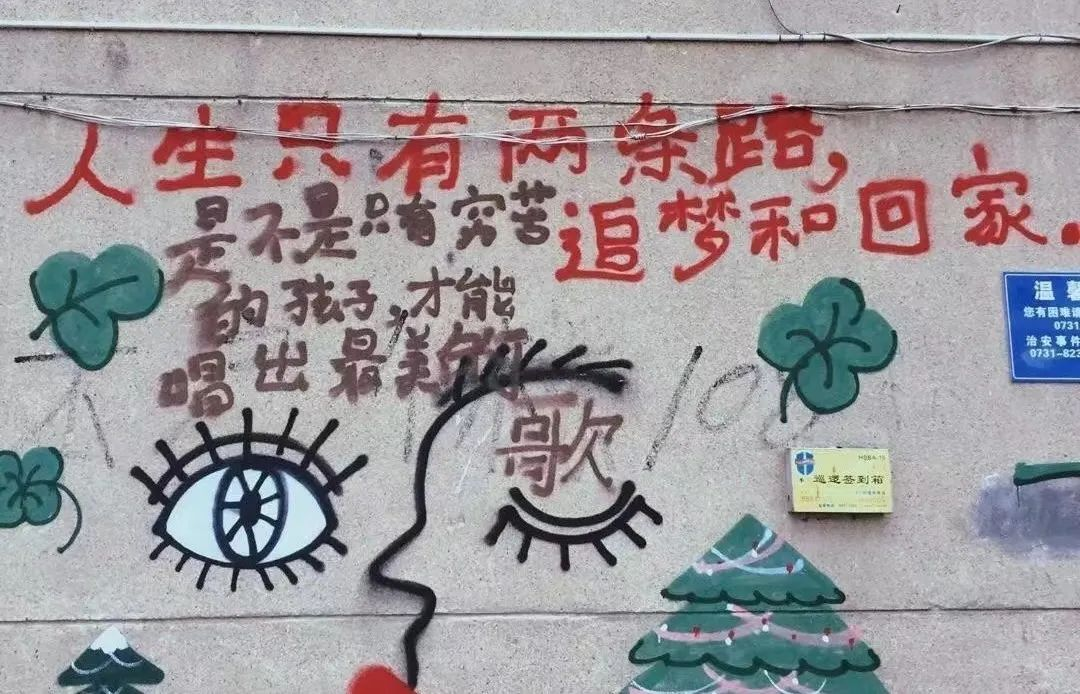 人生只有两条路，
追梦和回家.
是不是只有穷苦
的孩子,才能
唱出最美的
歌
温馨
您有困难请
0731
治安事件
0731-823
HSBA-15
巡逻签到箱